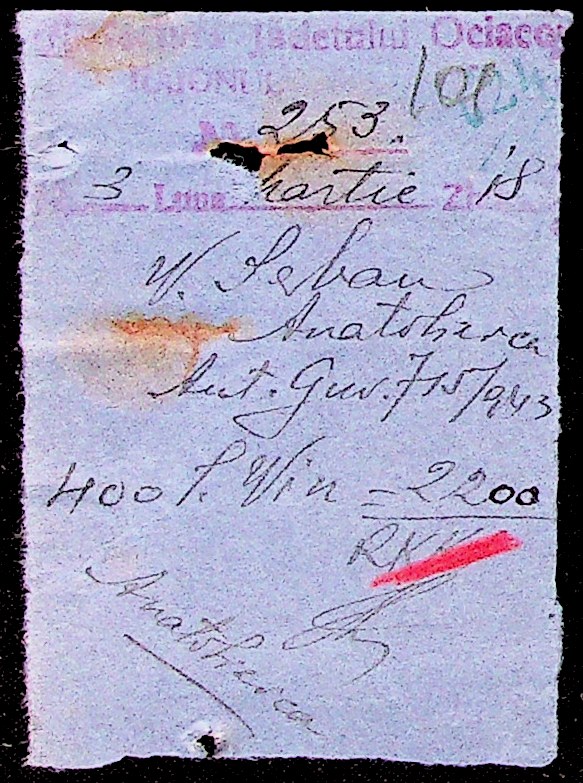 Județului Ociacov
RAIONUL
109
No 253.
3 Luna Martie Zi 18
V. Serban
Anatolievca
Aut. Guv. 715/943
400 l. Vin = 2200
RKK
Anatolievca